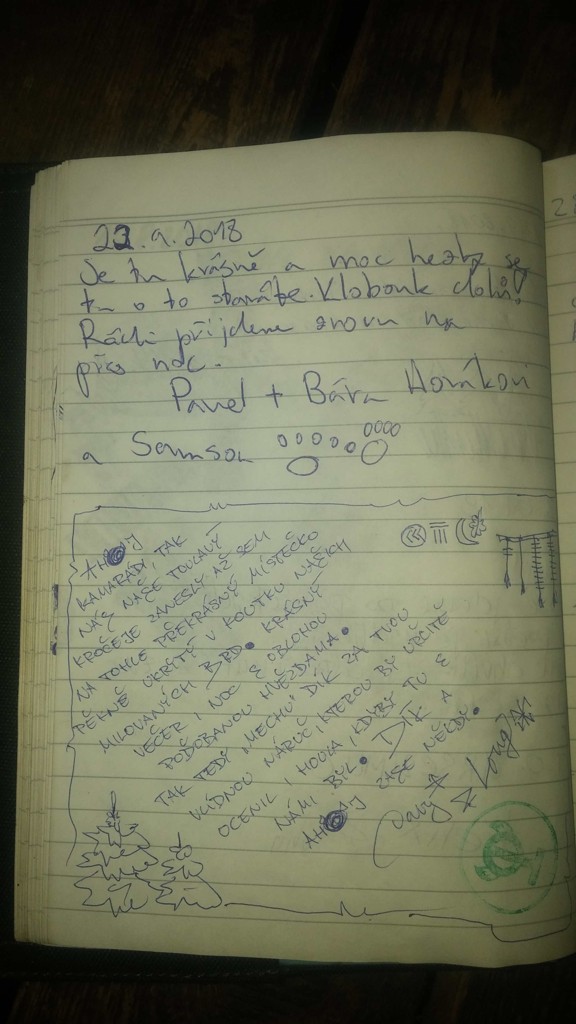 22.9.2018
Je tu krásně a moc hezky se
tu o to staráte. Klobouk dolů.
Rádi přijdeme znovu na
přes noc.
Pavel + Bára Horákovi
a Samson
AHOJ
KAMARÁDI, TAK
NÁS NAŠE TOULAVÝ
KROČEJE ZANESLY AŽ SEM
NA TOHLE PŘEKRÁSNÝ MÍSTEČKO
PĚKNĚ UKRYTÝ V KOUTKU NAŠICH
MILOVANÝCH BRD. KRÁSNÝ
VEČER I NOC S OBLOHOU
POSÁZANOU HVĚZDAMA.
TAK TEDY „MECHU“ DÍK ZA TVOU
VLÍDNOU NÁRUČ, KTEROU BY URČITĚ
OCENIL I HOUXA, KDYBY TU S
NÁMI BYL. DÍK A
AHOJ ZASE NĚKDY.
Davy Long